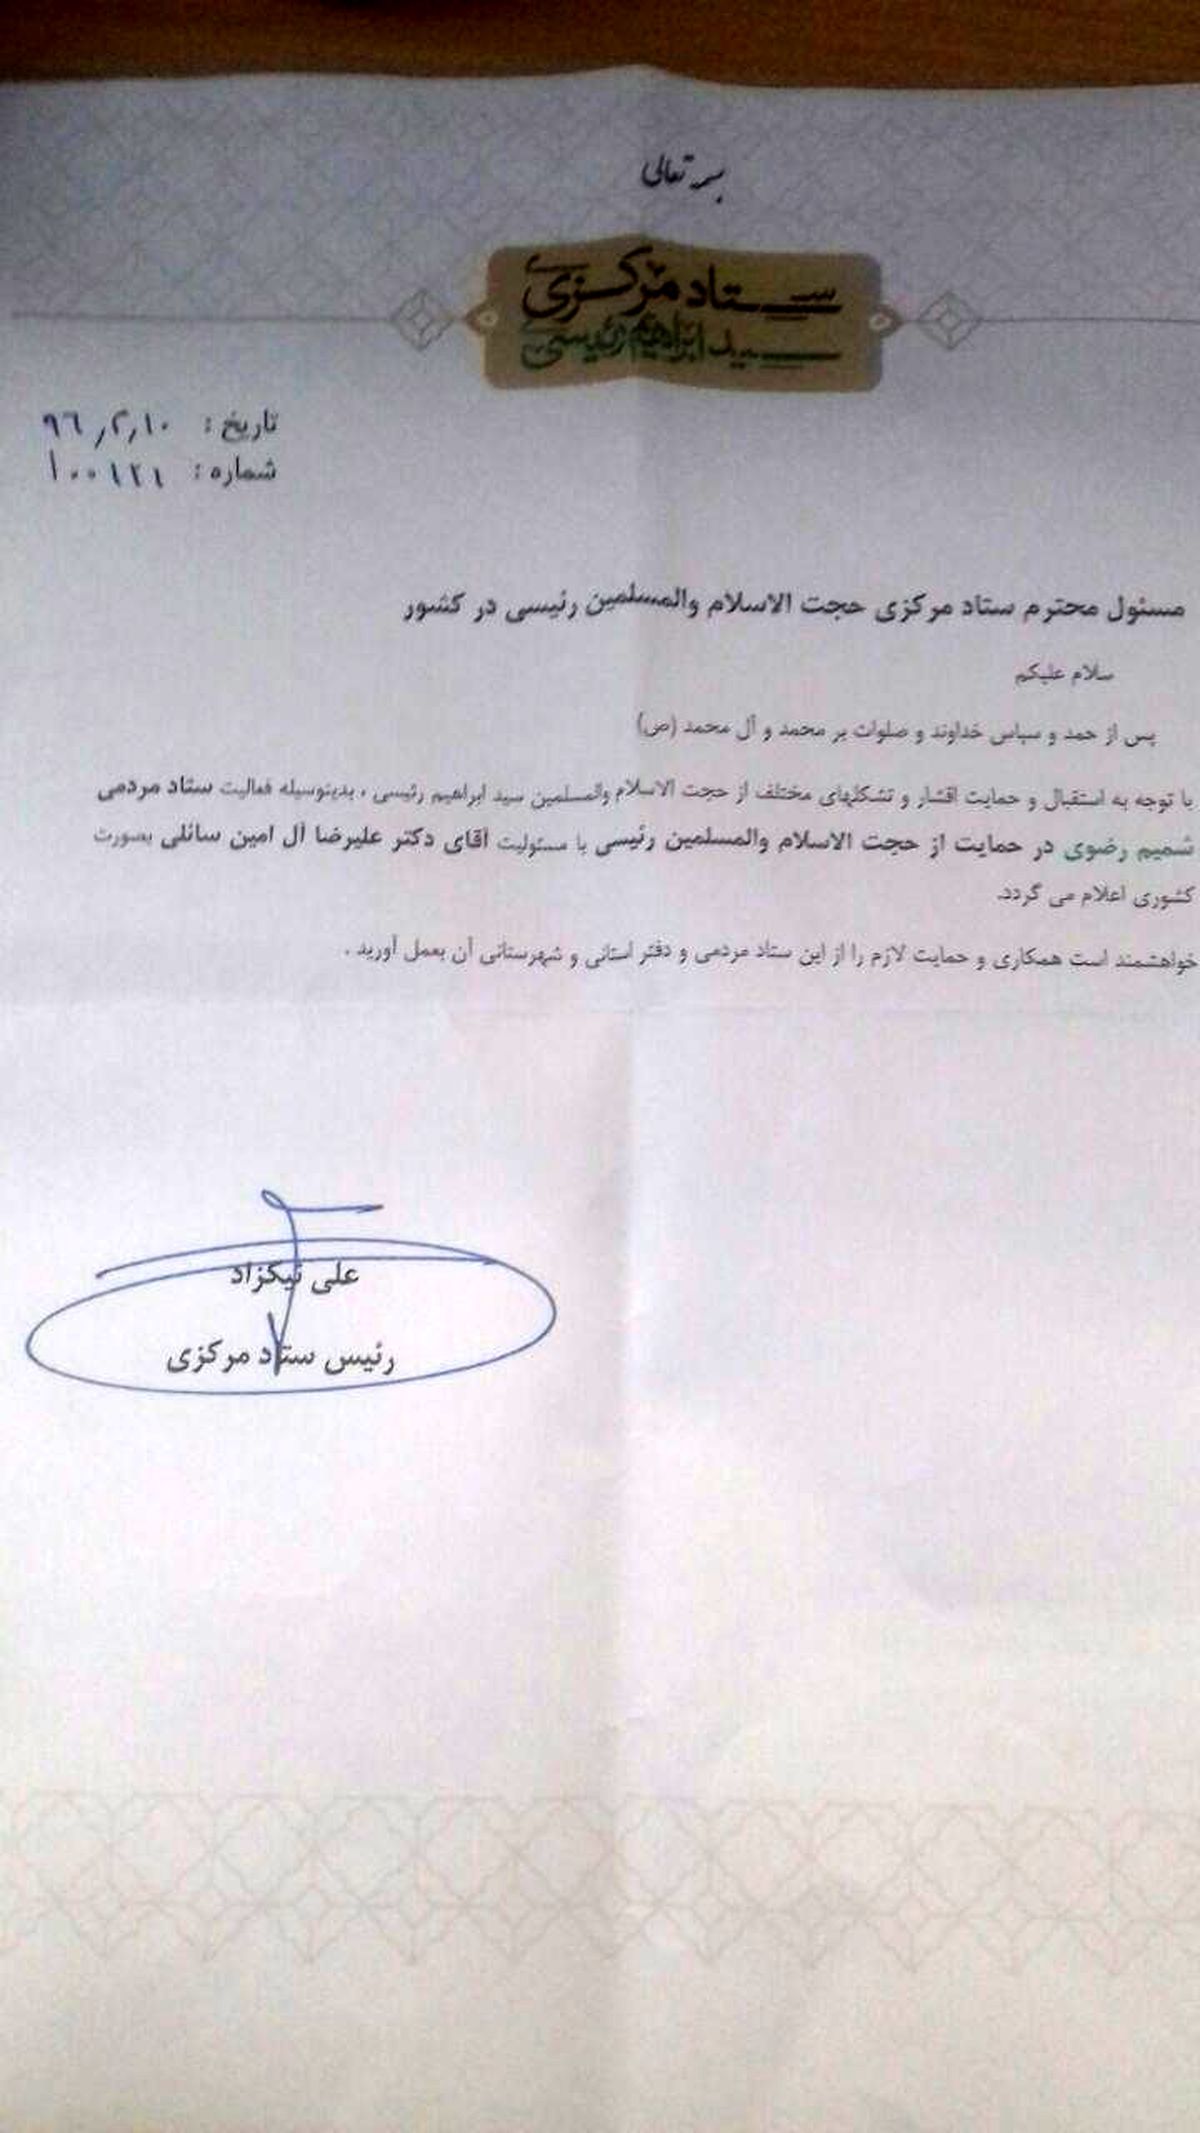 بسمه تعالی
ستاد مرکزی
سید ابراهیم رئیسی
تاریخ : ۹۶٫۲٫۱۰
شماره : ۱۰۰۱۲۱
مسئول محترم ستاد مرکزی حجت الاسلام والمسلمین رئیسی در کشور
سلام علیکم
پس از حمد و سپاس خداوند و صلوات بر محمد و آل محمد (ص)
با توجه به استقبال و حمایت اقشار و تشکلهای مختلف از حجت الاسلام والمسلمین سید ابراهیم رئیسی ، بدینوسیله فعالیت ستاد مردمی
شمیم رضوی در حمایت از حجت الاسلام والمسلمین رئیسی با مسئولیت آقای دکتر علیرضا آل امین سائلی بصورت
کشوری اعلام می گردد.
خواهشمند است همکاری و حمایت لازم را از این ستاد مردمی و دفتر استانی و شهرستانی آن بعمل آورید .
علی نیکزاد
رئیس ستاد مرکزی